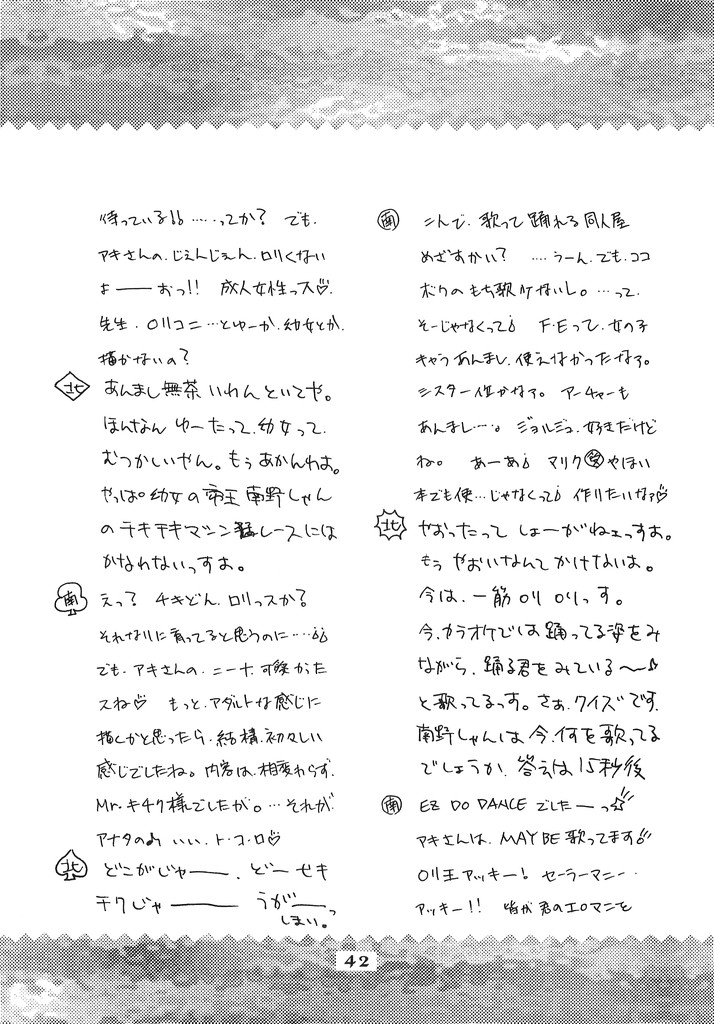 南 こんで、歌って踊れる同人屋
めざすかい? ….うーん、でも、ココ
ボクのもち歌ノケないし。…って、
そーじゃなくって♪ F・Eって、女の子
キャラあんまし、使えなかったなァ。
シスター位かなァ。アーチャーも
あんまし…。ジョルジュ、好きだけど
ね。 あーあ♪ マリク受やほい
本でも使…じゃなくって♪ 作りたいなァ♡
北 やおったって しょーがねェっすよ。
もう やおいなんて かけないよ。
今は、一筋ロリ ロリっす。
今、カラオケでは 踊ってる姿をみ
ながら、踊る君を みている〜♪
と歌ってるっす。さぁ、クイズです、
南野しゃんは 今、何を歌ってる
でしょうか、答えは 15秒後
南 EZ DO DANCE でしたーっ☆!!
アキさんは、MAY BE 歌ってます!!
ロリ王アッキー! セーラーマニー・
アッキー!! 皆が君のエロマンを
待っている!! ……ってか? でも、
アキさんの、じぇんじぇん、ロリくない
よ――おっ!! 成人女性っス♡、
先生、ロリコニ…とゆーか、幼女とか、
描かないの?
北 あんまし無茶 いわんといてや。
ほんなん ゆーたって、幼女って、
むつかしいやん。もう あかんわよ。
やっぱ 幼女の帝王 南野しゃん
の チキチキマシン猛レースには
かなわないっすよ。
南 えっ? チキどん、ロリっスか?
それなりに育ってると思うのに…;;
でも、アキさんの、ニーナ、可愛かた
スね♡ もっと、アダルトな感じに
描くかと思ったら、結構、初々しい
感じでしたね。内容は、相変わらず、
Mr.キチク様でしたが。…それが、
アナタの♪ いい、ト・コ・ロ♡
北 どこがじゃ――、どー セキ
チクじゃ―― うが――っ
しまい。
42